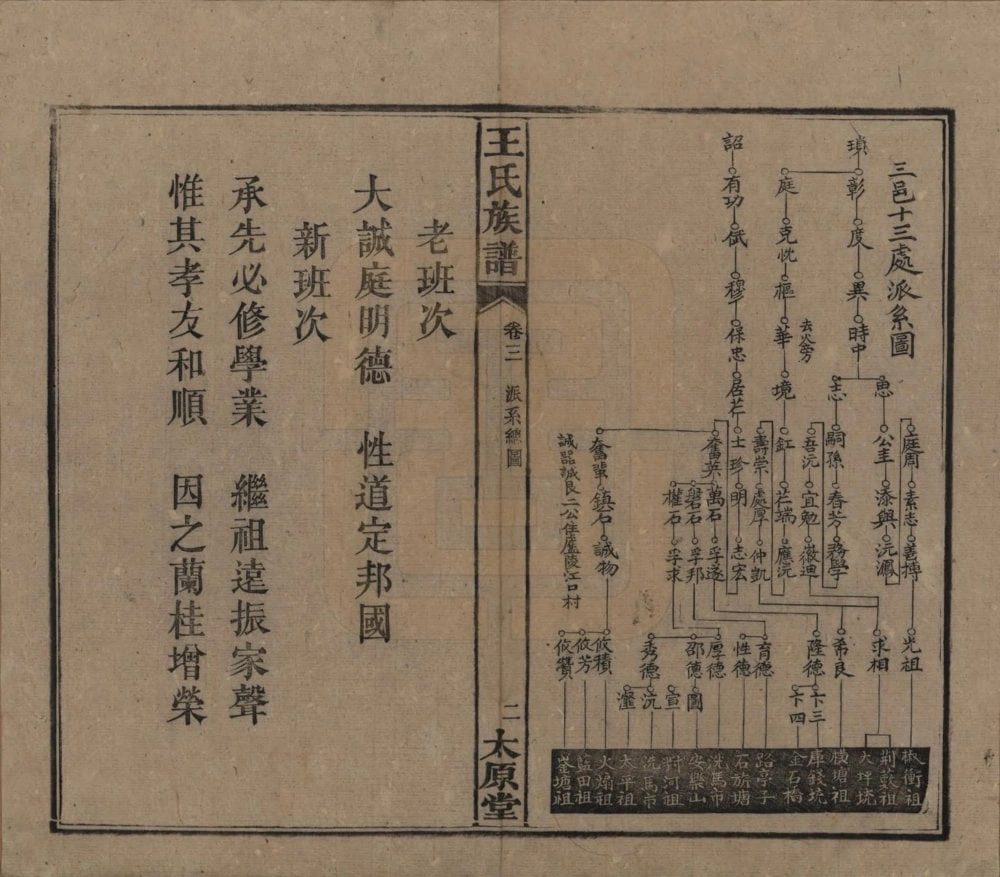 三邑十三處派系圖
瑣
彰
度
異
時中
思
志
庭周
素志
善搏
光祖
公主
添與
沅鳳
求相
嗣孫
春芳
務學
吾沅
宜勉
薇迪
希良
庭
克忱
樞
華
去炎方
境
釭
芒端
應沅
壽崇
處厚
仲凱
隆德
卞三
卞四
詔
有功
斌
穆
保忠
居芒
士珍
明
志宏
育德
性德
奮英
萬石
孚遂
磐石
孚邦
權石
孚求
厚德
邵德
秀德
圖
宣
沆
瀣
奮輩
鎮石
誠物
攸積
攸芳
攸贊
誠器誠良二公住廬陵江口村
板衡祖
荊藪祖
大坪垸
橫塘祖
庫錢坑
金石橋
路亭子
石族塘
洗馬市
安樂山
對河祖
洗馬市
太平祖
火煽祖
藍田祖
釜塘祖
王氏族譜
卷三
派系總圖
二
太原堂
老班次
大誠庭明德 性道定邦國
新班次
承先必修學業 繼祖遠振家聲
惟其孝友和順 因之蘭桂增榮